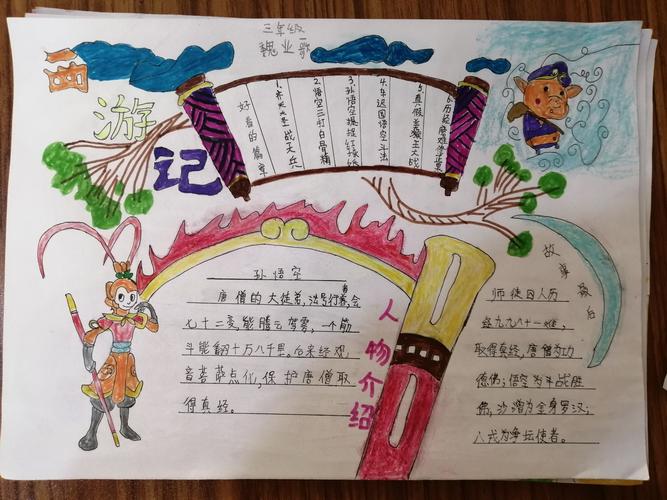 三年级
魏业歌
西游记
好看的篇章
1.齐天大圣战天兵
2.悟空三打白骨精
3.孙悟空
4.车迟国悟空斗法
5.真假美猴王大战
6.历经磨难
孙悟空
唐僧的大徒弟,法号行者,会
七十二变能腾云驾雾,一个筋
斗能翻十万八千里。后来经观
音菩萨点化,保护唐僧取
得真经。
人物介绍
故事
师徒四人历
经九九八十一难,
取得真经,唐僧为功
德佛;悟空为斗战胜
佛,沙僧为全身罗汉;
八戒为净坛使者。